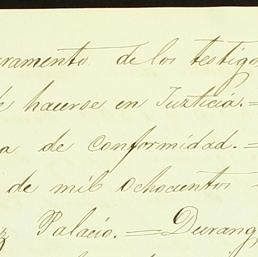 uramento de los testigo
e hacerse en Justicia.=
a de conformidad.=
de mil ochocientos
z Palacio.=Durang